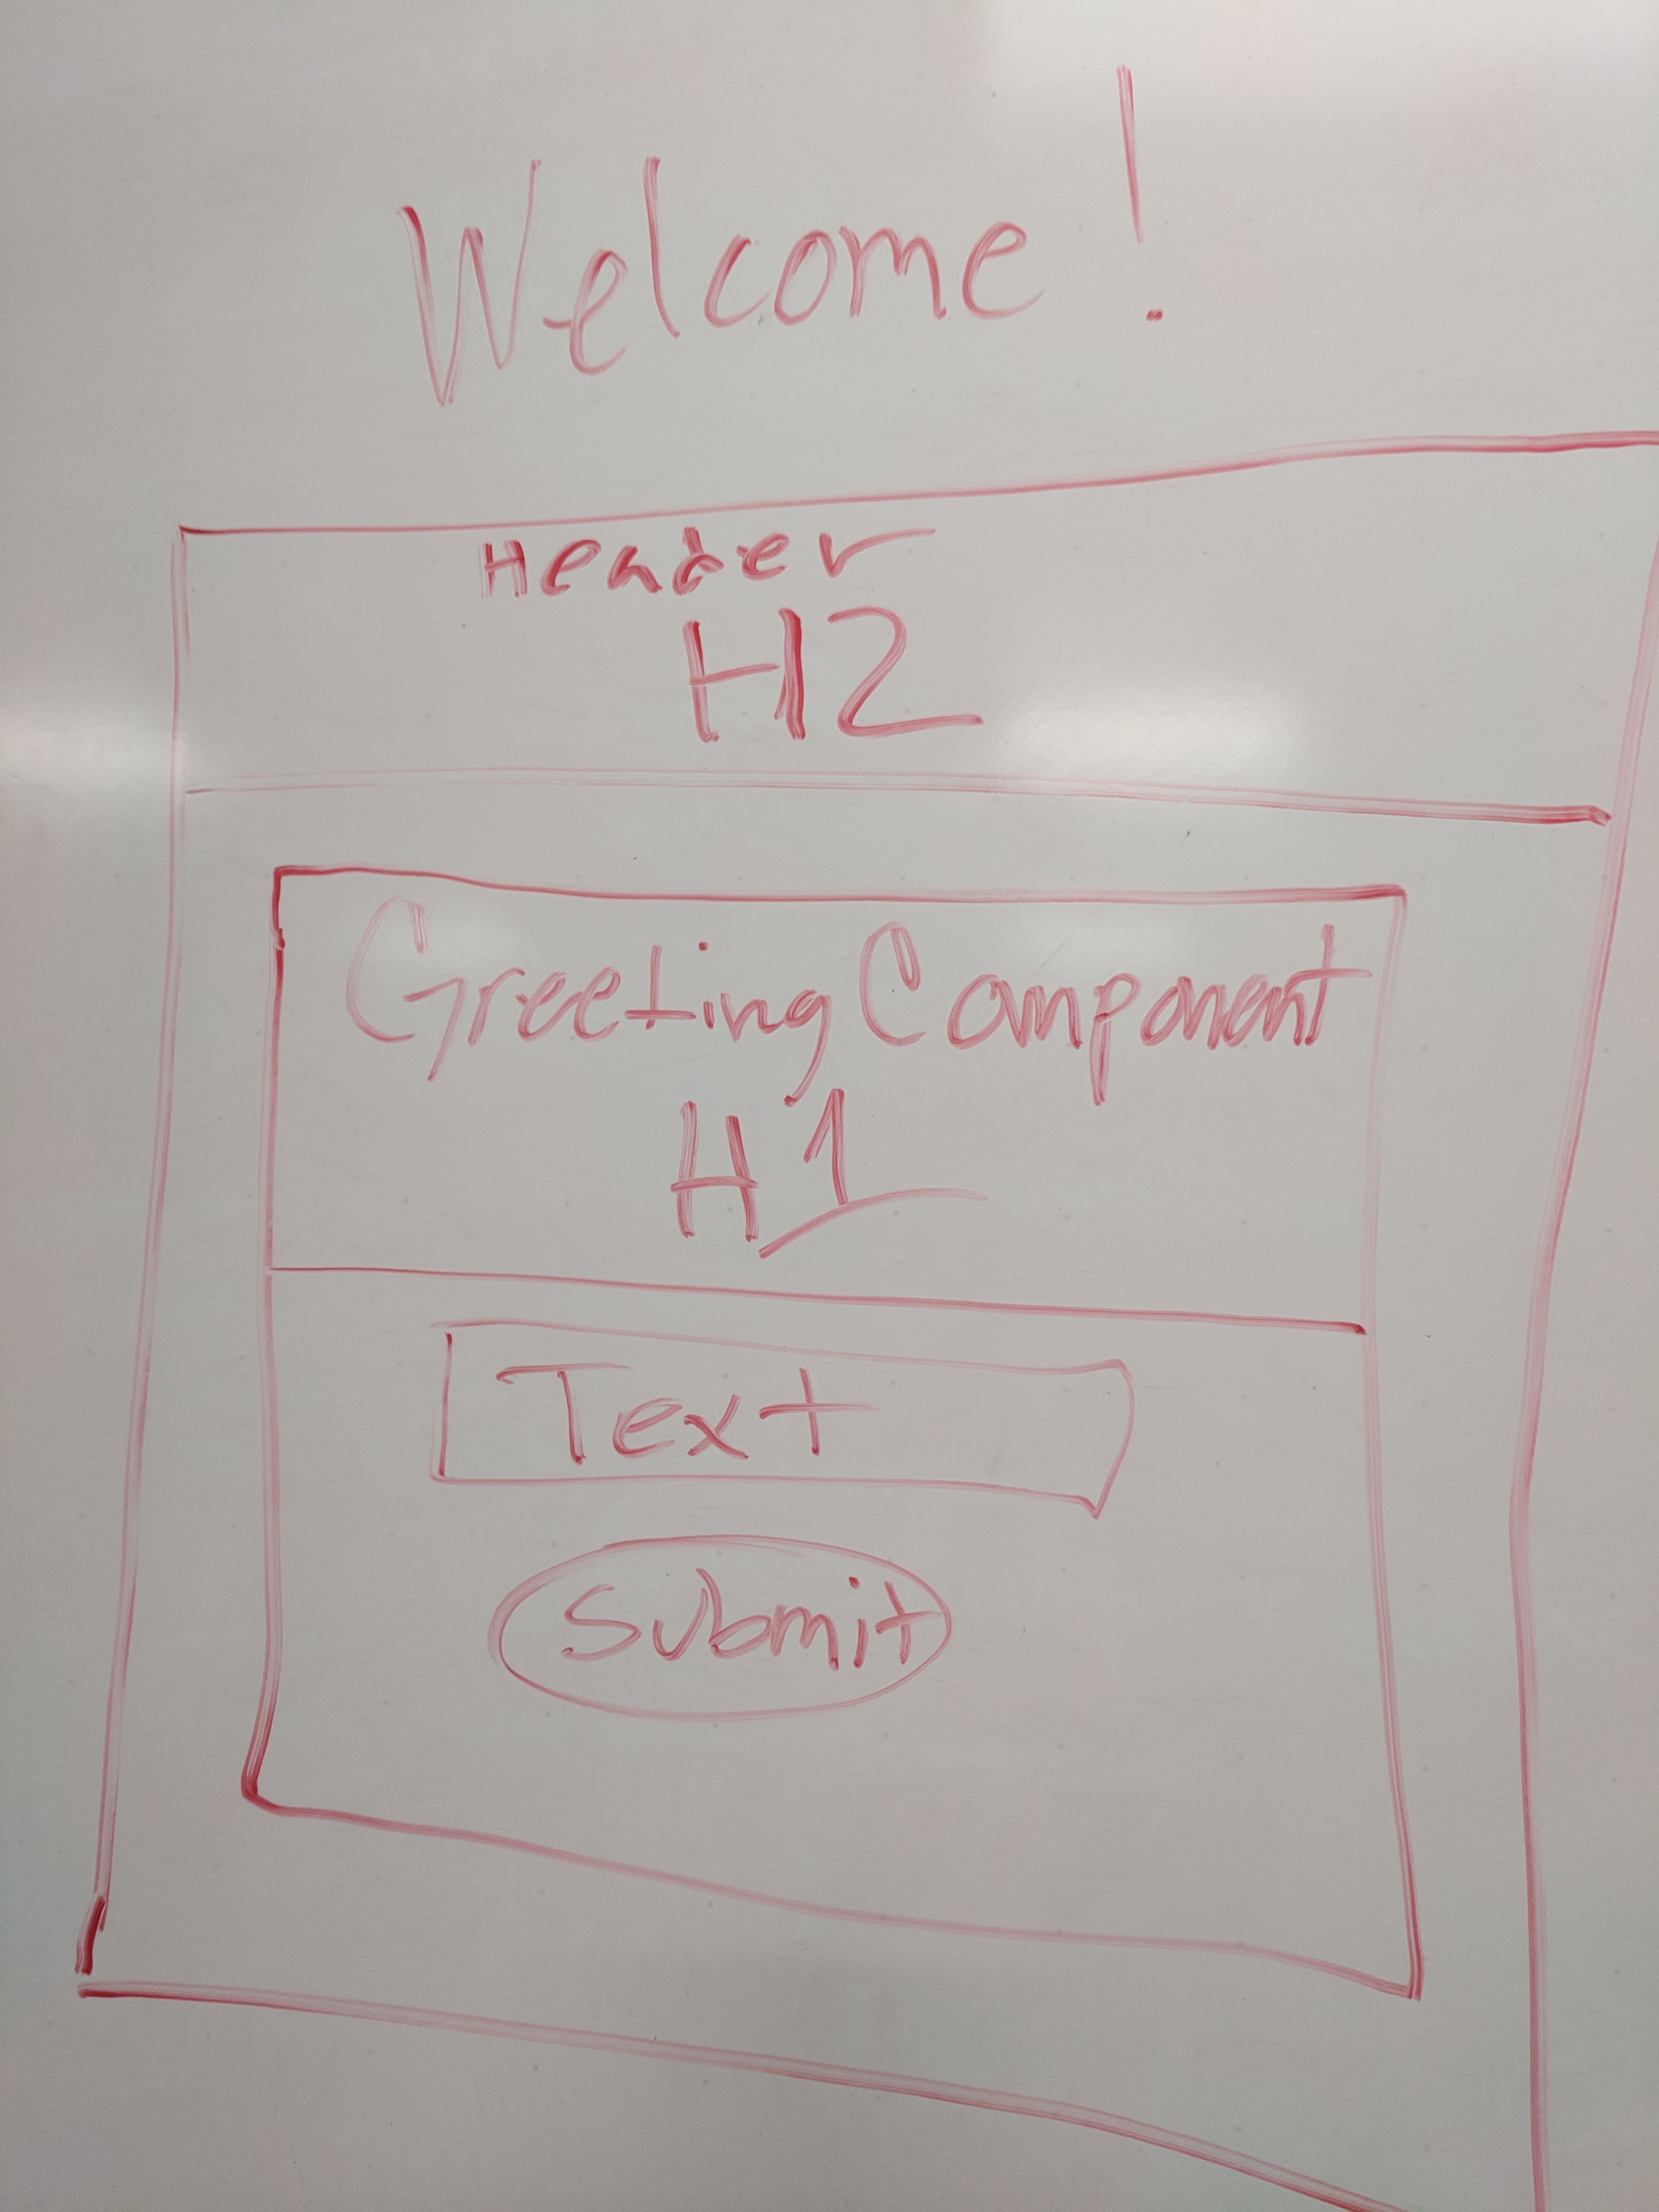 Welcome!
Header
H2
Greeting Component
H1
Text
Submit